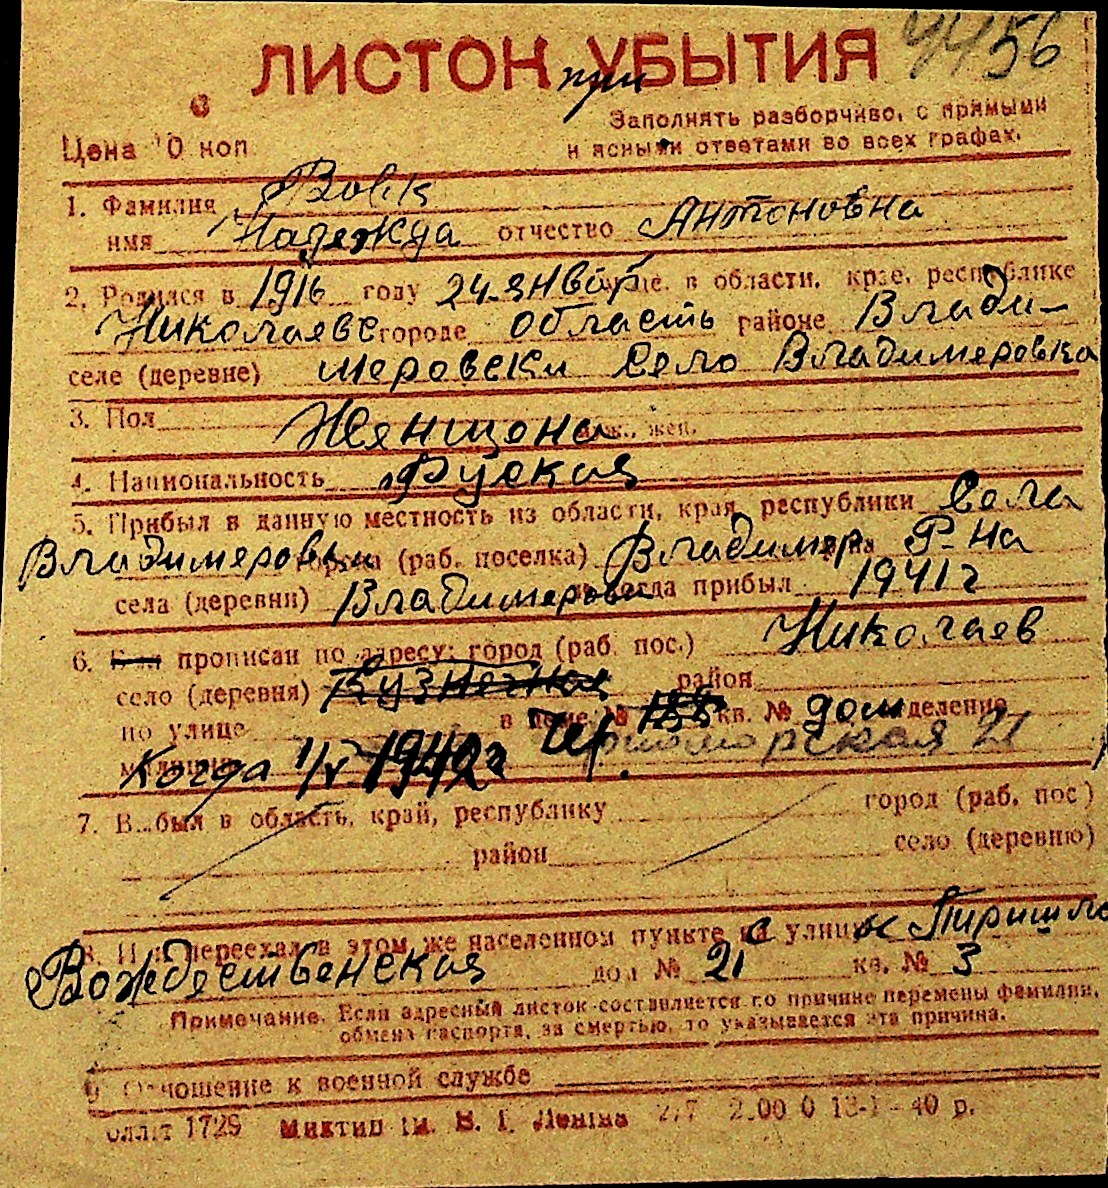 4456
ЛИСТОК при УБЫТИЯ
Заполнять разборчиво, с прямыми
Цена 10 коп. и ясными ответами во всех графах.
1. Фамилия Вовк
имя Надежда отчество Антоновна
2. Родился в 1916 году 24 январ в области, крае, республике
Николаевс городе область районе Влади-
селе (деревне) меровски Село Владимеровка
3. Пол Женщона муж., жен.
4. Национальность Руская
5. Прибыл в данную местность из области, края, республики Села
Владимеровки города (раб. поселка) Владимер Р-на
села (деревни) Владимеровк когда прибыл 1941 г
6. Был прописан по адресу: город (раб. пос.) Николаев
село (деревня) Кузнечная район
по улице в доме № 155 кв. № дом отделение
милиции Когда 1/V 1942 г Черноморская 21
7. Выбыл в область, край, республику город (раб. пос)
район село (деревню)
8. Или переехал в этом же населенном пункте на улицу
Вождественская дом № 21 кв. № 3
Примечание. Если адресный листок составляется по причине перемены фамилии,
обмена паспорта, за смертью, то указывается эта причина.
9. Отношение к военной службе
1729 ім. В. І. Леніна 40 р.